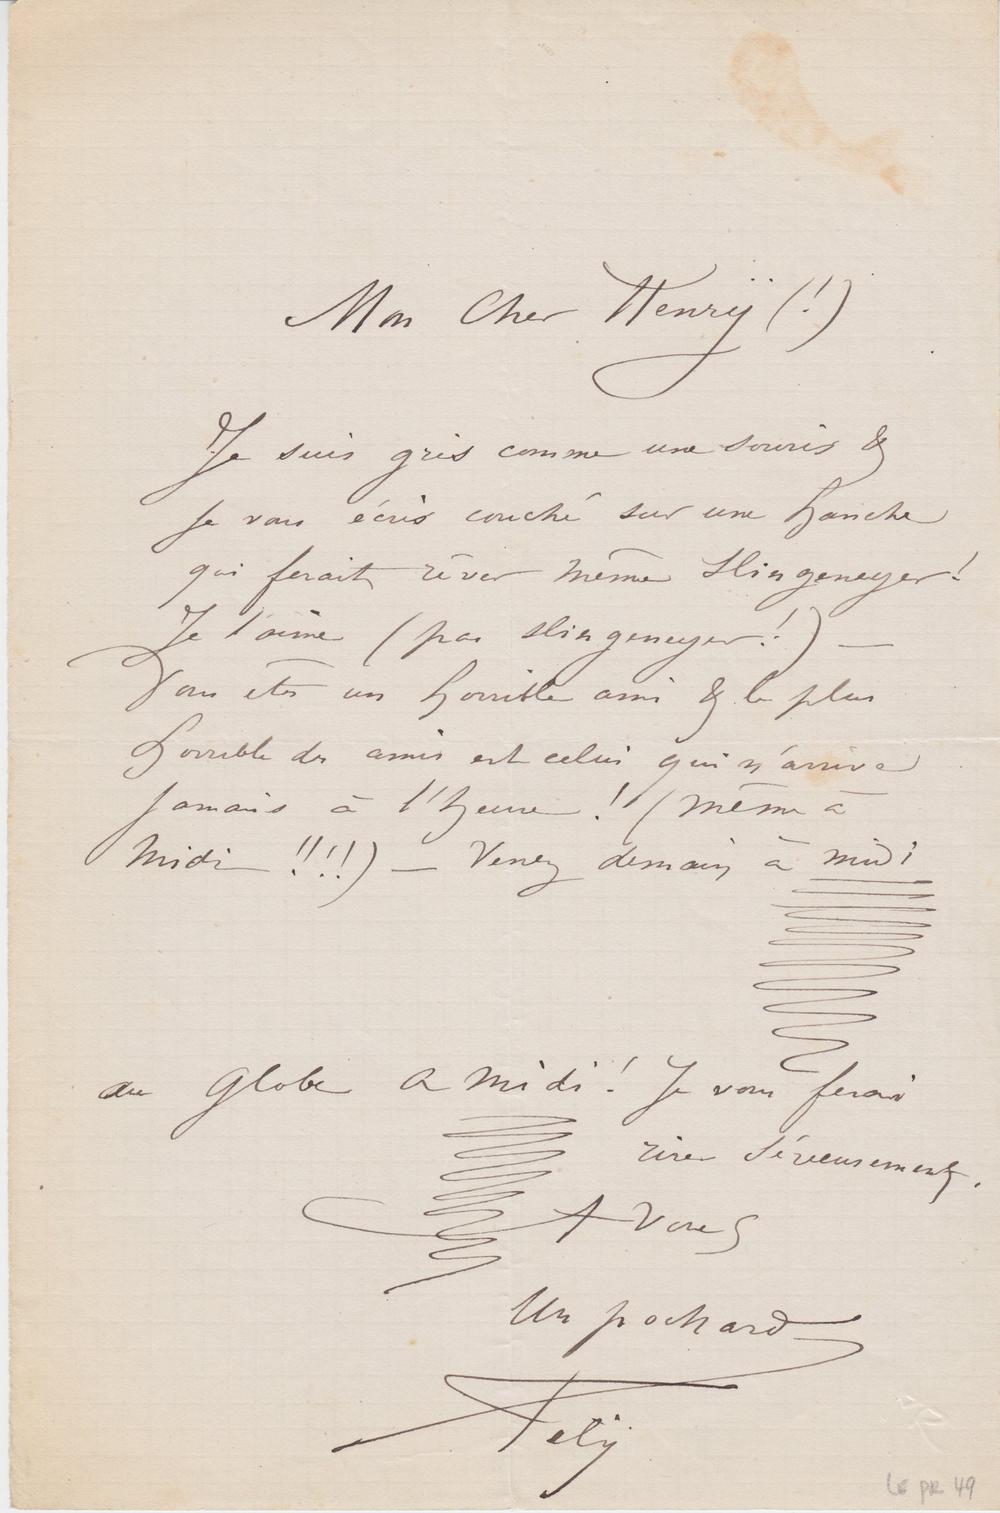 Mon Cher Henrÿ (!)
Je suis gris comme une souris &
je vous écris couché sur une hanche
qui ferait rêver même Slingeneyer!
Je l'aime (pas Slingeneyer!) —
Vous êtes un horrible ami & le plus
horrible des amis est celui qui n'arrive
jamais à l'heure! (même à
midi !!!!) — Venez demain à midi
au Globe a midi! Je vous ferai
rire sérieusement.
A Vous
Un pochard
Fély
LE PR 49